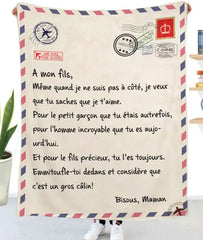 A mon fils,
Même quand je ne suis pas à côté, je veux
que tu saches que je t'aime.
Pour le petit garçon que tu étais autrefois,
pour l'homme incroyable que tu es aujo-
urd'hui.
Et pour le fils précieux, tu l'es toujours.
Emmitoufle-toi dedans et considère que
c'est un gros câlin!
Bisous, Maman